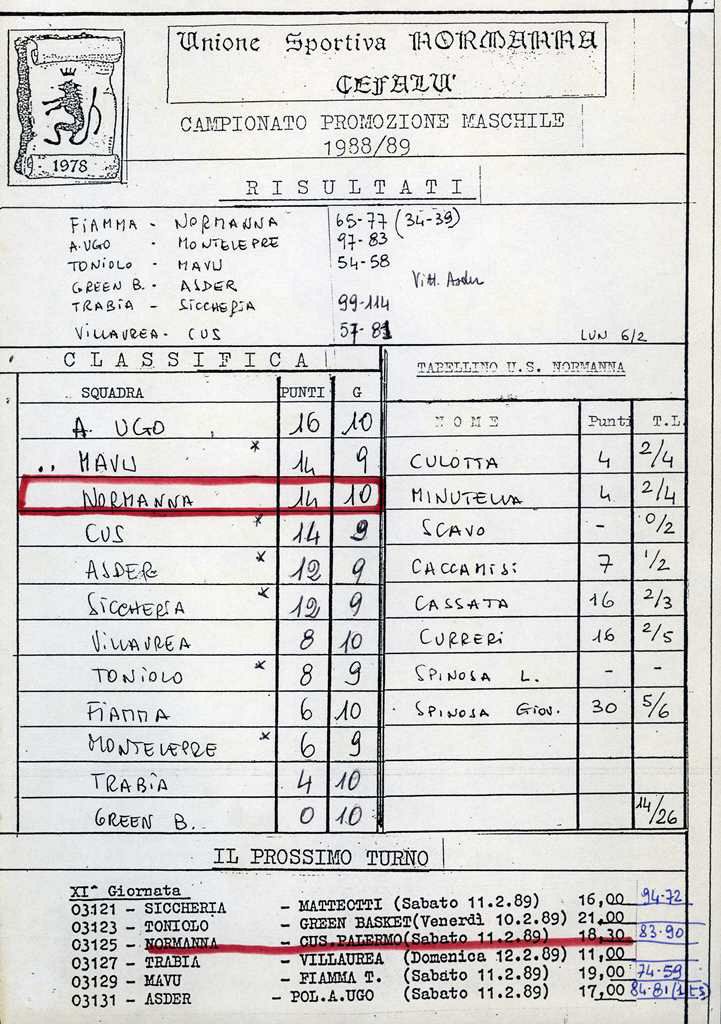 Unione Sportiva NORMANNA
CEFALU'
CAMPIONATO PROMOZIONE MASCHILE
1988/89
1978
RISULTATI
FIAMMA - NORMANNA 65-77 (34-39)
A.UGO - MONTELEPRE 97-83
TONIOLO - MAVU 54-58
GREEN B. - ASDER Vitt. Asder
TRABIA - SICCHERIA 99-114
VILLAUREA - CUS 57-81
LUN 6/2
CLASSIFICA
SQUADRA PUNTI G
A. UGO 16 10
.. MAVU * 14 9
NORMANNA 14 10
CUS * 14 9
ASDER * 12 9
SICCHERIA * 12 9
VILLAUREA 8 10
TONIOLO * 8 9
FIAMMA 6 10
MONTELEPRE * 6 9
TRABIA 4 10
GREEN B. 0 10
TABELLINO U.S. NORMANNA
NOME Punti T.L.
CULOTTA 4 2/4
MINUTELLA 4 2/4
SCAVO - 0/2
CACCAMISI 7 1/2
CASSATA 16 2/3
CURRERI 16 2/5
SPINOSA L. - -
SPINOSA GIOV. 30 5/6
14/26
IL PROSSIMO TURNO
XI^ Giornata
03121 - SICCHERIA - MATTEOTTI (Sabato 11.2.89) 16,00 94-72
03123 - TONIOLO - GREEN BASKET(Venerdì 10.2.89) 21,00
03125 - NORMANNA - CUS.PALERMO(Sabato 11.2.89) 18,30 83-90
03127 - TRABIA - VILLAUREA (Domenica 12.2.89) 11,00
03129 - MAVU - FIAMMA T. (Sabato 11.2.89) 19,00 74-59
03131 - ASDER - POL.A.UGO (Sabato 11.2.89) 17,00 84-81 (1 ts)